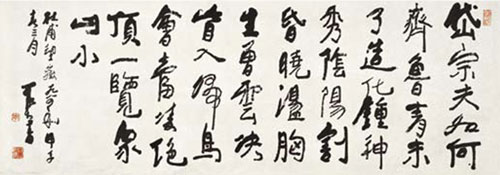 岱宗夫如何
齊魯青未
了造化鍾神
秀陰陽割
昏曉盪胸
生曾雲決
眥入歸鳥
會當凌絕
頂一覽眾
山小
杜甫望嶽 甲子
春三月